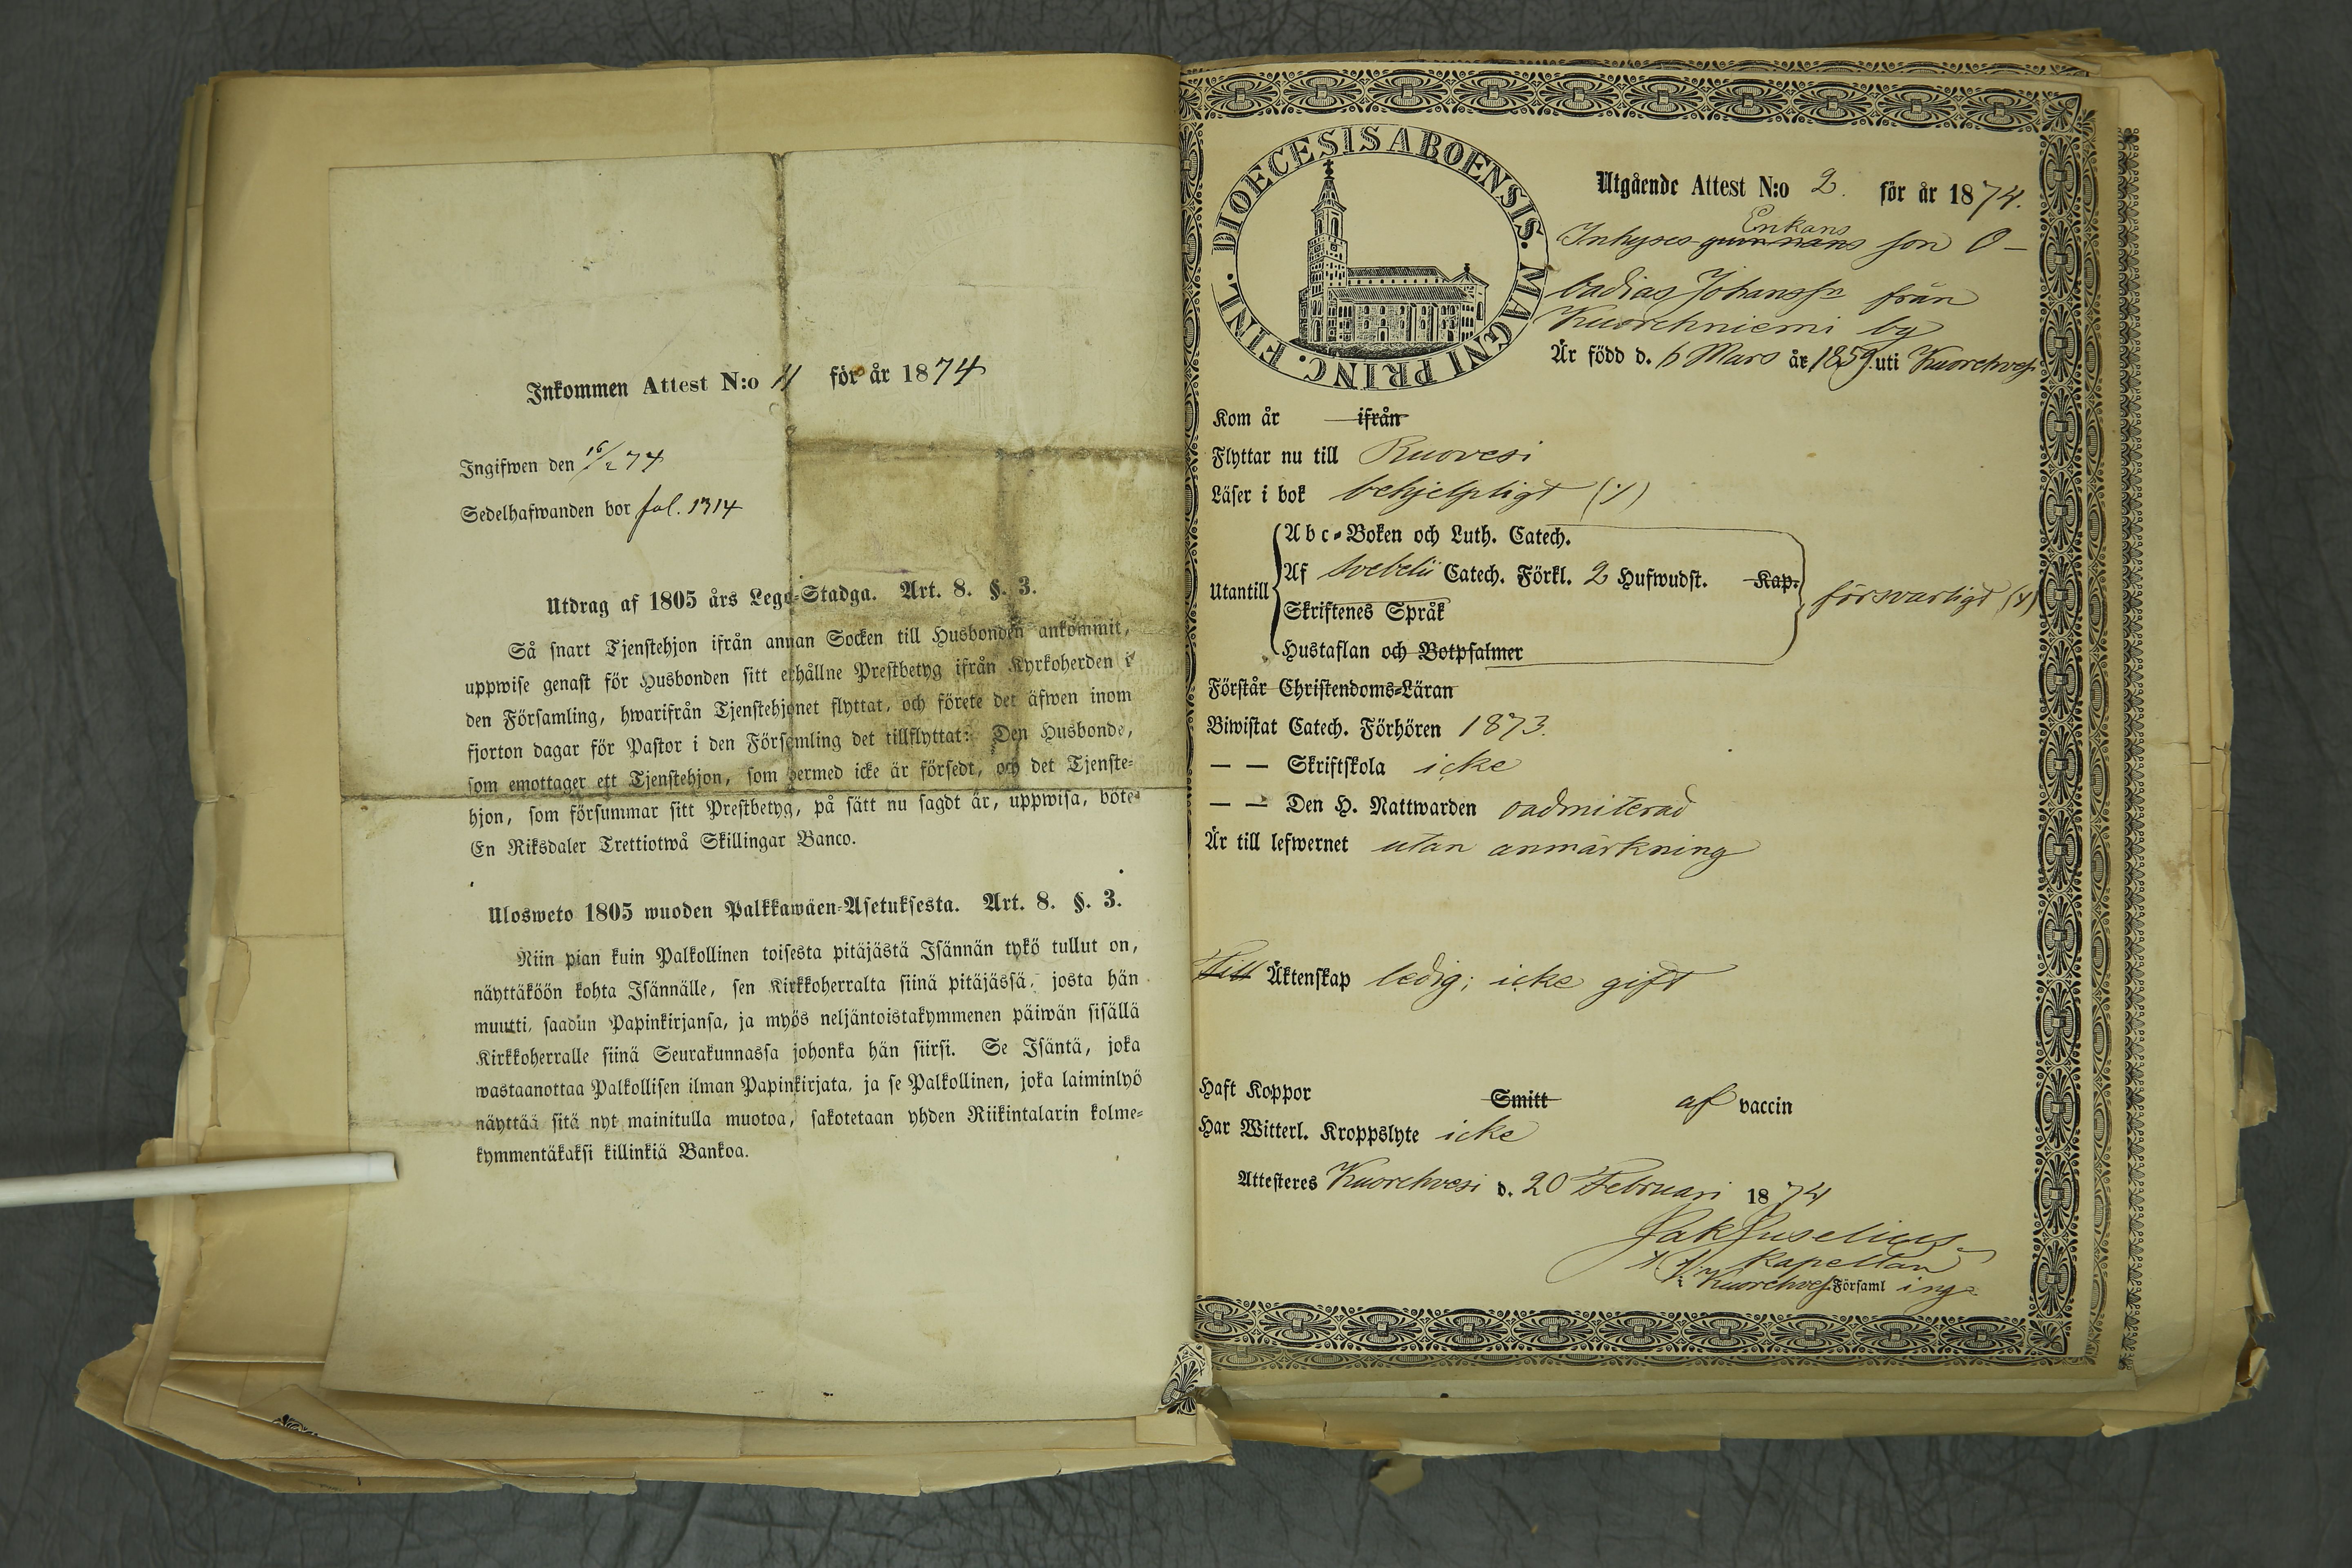 Inkommen Attest N:o 11 för år 1874
Ingifwen den 16/2 74
Sedelhafwanden bor fol. 1314
Utdrag af 1805 års Lego-Stadga. Art. 8. §. 3.
Så snart Tjenstehjon ifrån annan Socken till Husbonden ankommit,
uppwise genast för Husbonden sitt erhållne Prestbetyg ifrån Kyrkoherden i
den Församling, hwarifrån Tjenstehjonet flyttat, och förete det äfwen inom
fjorton dagar för Pastor i den Församling det tillflyttat: Den Husbonde,
som emottager ett Tjenstehjon, som dermed icke är försedt, och det Tjenste-
hjon, som försummar sitt Prestbetyg, på sätt nu sagdt är, uppwisa, böte
En Riksdaler Trettiotwå Skillingar Banco.
Ulosweto 1805 wuoden Palkkawäen-Asetuksesta. Art. 8. §. 3.
Niin pian kuin Palkollinen toisesta pitäjästä Isännän tykö tullut on,
näyttäköön kohta Isännälle, sen Kirkkoherralta siinä pitäjässä, josta hän
muutti, saadun Papinkirjansa, ja myös neljäntoistakymmenen päiwän sisällä
Kirkkoherralle siinä Seurakunnassa johonka hän siirsi. Se Isäntä, joka
wastaanottaa Palkollisen ilman Papinkirjata, ja se Palkollinen, joka laiminlyö
näyttää sitä nyt mainitulla muotoa, sakotetaan yhden Riikintalarin kolme-
kymmentäkaksi killinkiä Bankoa.
DIOECESIS ABOENSIS. MAGNI PRINC. FINL.
Utgående Attest N:o 2. för år 1874.
Enkans
Inhyses son O-
badias Johanss:n från
Kuorehniemi by
Är född d. 6 Mars år 1859 uti Kuorehvesi
Kom år ifrån
Flyttar nu till Ruovesi
Läser i bok behjelpligt (y)
Utantill
Abc-Boken och Luth. Catech.
Af Svebelii Catech. Förkl. 2 Hufwudst. Kap.
Skriftenes Språk
Hustaflan och Botpsalmer
försvarligt (y)
Förstår Christendoms-Läran
Biwistat Catech. Förhören 1873.
— — Skriftskola icke
— — Den H. Nattwarden oadmitterad
Är till lefwernet utan anmärkning
Till Äktenskap ledig; icke gift
Haft Koppor Smitt af vaccin
Har Witterl. Kroppslyte icke
Attesteres Kuorehvesi d. 20 Februari 1874
Jak Juselius
Kapellan
i Kuorehvesi Församl ing